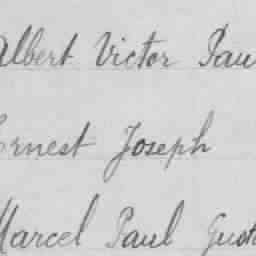 Albert Victor Pau
Ernest Joseph
Marcel Paul Gust